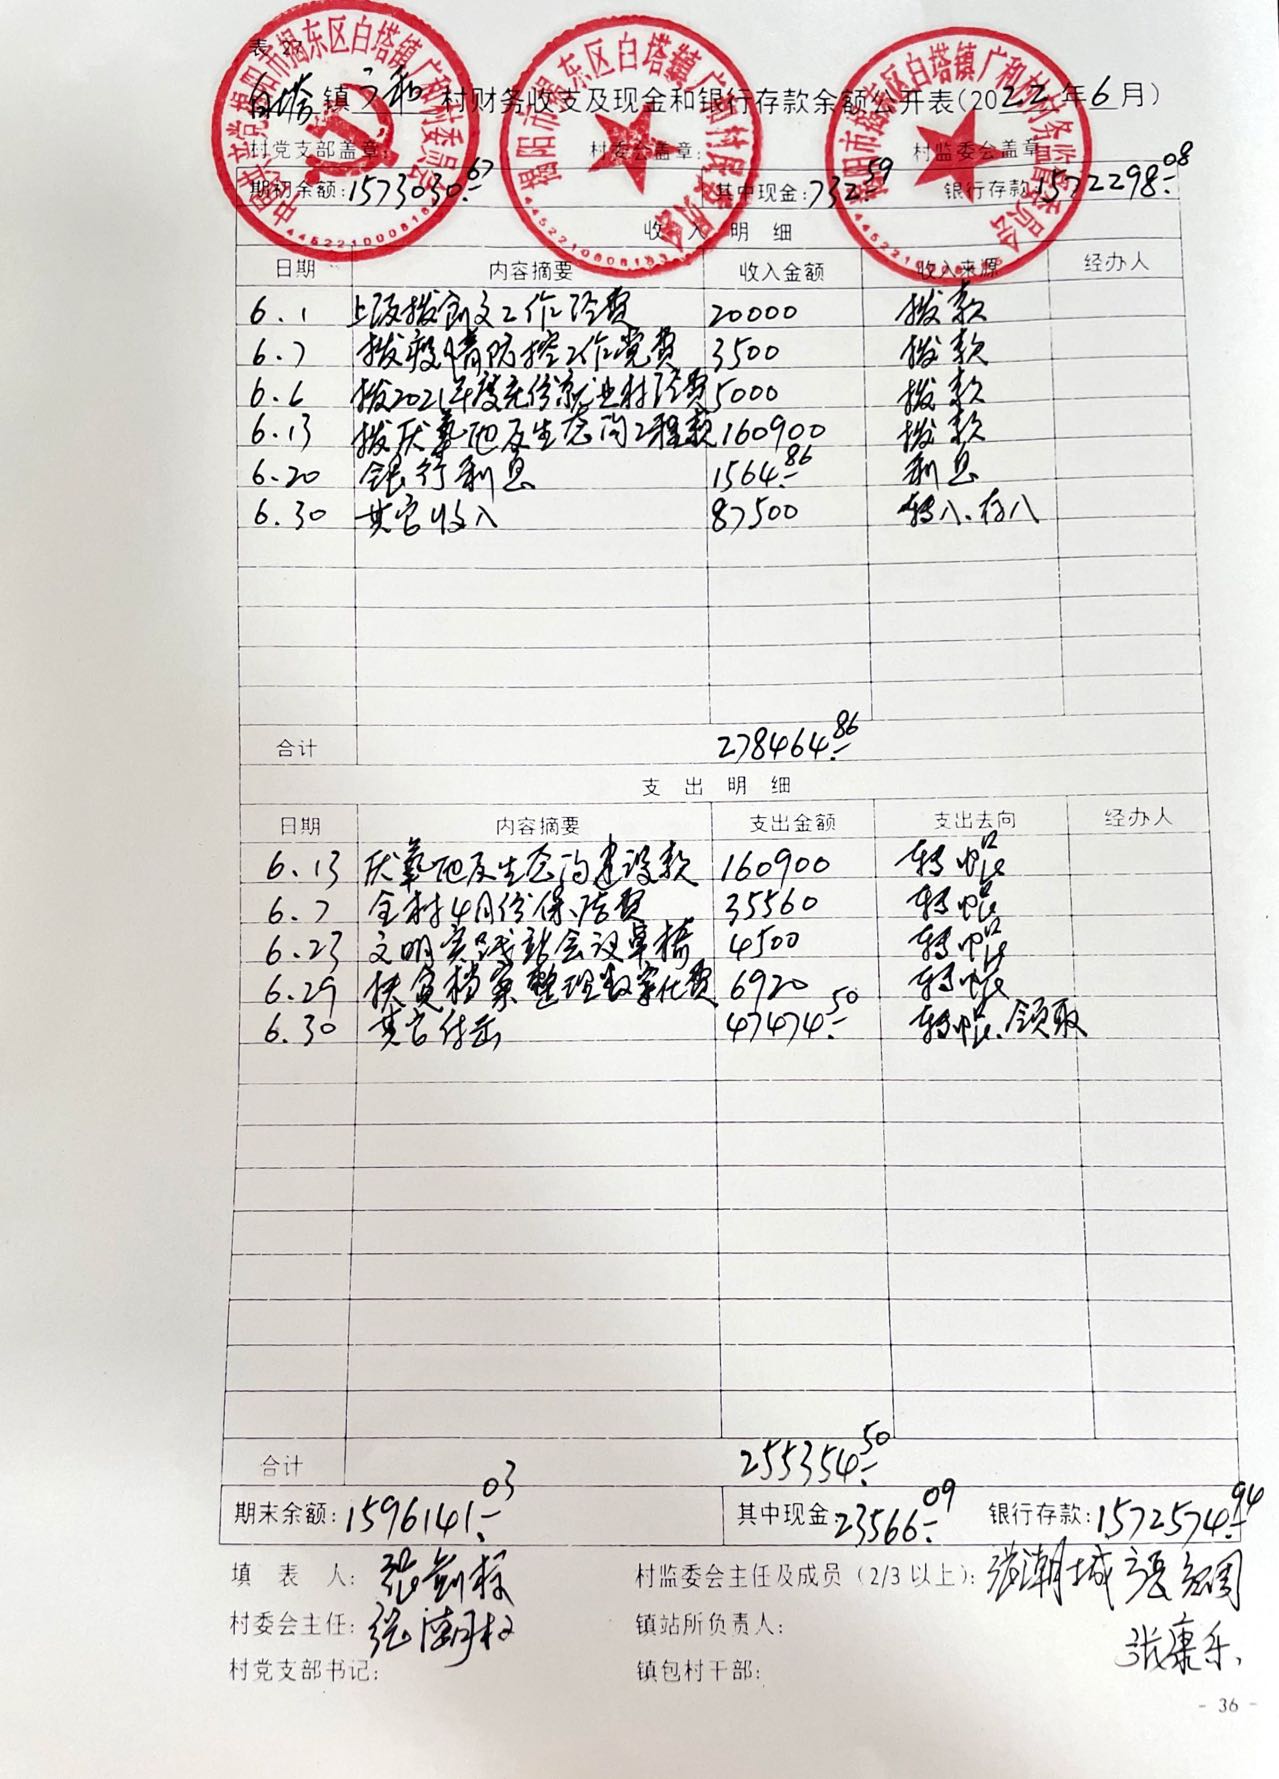 表27
白塔镇广和村财务收支及现金和银行存款余额公开表(2022年6月)
村党支部盖章: 村委会盖章: 村监委会盖章:
期初余额:1573030.67 其中现金:732.59 银行存款:1572298.08
收入明细
日期 内容摘要 收入金额 收入来源 经办人
6.1 上级拨创文工作经费 20000 拨款
6.7 拨疫情防控工作党费 3500 拨款
6.6 拨2021年度充份就业村经费 5000 拨款
6.13 拨厌氧池及生态沟工程款 160900 拨款
6.20 银行利息 1564.86 利息
6.30 其它收入 87500 转入.存入
合计 278464.86
支出明细
日期 内容摘要 支出金额 支出去向 经办人
6.13 厌氧池及生态沟建设款 160900 转帐
6.7 全村4月份保洁费 35560 转帐
6.23 文明实践站会议桌椅 4500 转帐
6.29 扶贫档案整理数字化费 6920 转帐
6.30 其它付出 47474.50 转帐.领取
合计 255354.50
期末余额:1596141.03 其中现金:23566.09 银行存款:1572574.94
填表人: 张 村监委会主任及成员(2/3以上): 张潮城 张
村委会主任: 张 镇站所负责人: 张康乐
村党支部书记: 镇包村干部:
- 36 -
中国共产党揭阳市揭东区白塔镇广和村委员会
揭阳市揭东区白塔镇广和村民委员会
揭阳市揭东区白塔镇广和村村务监督委员会